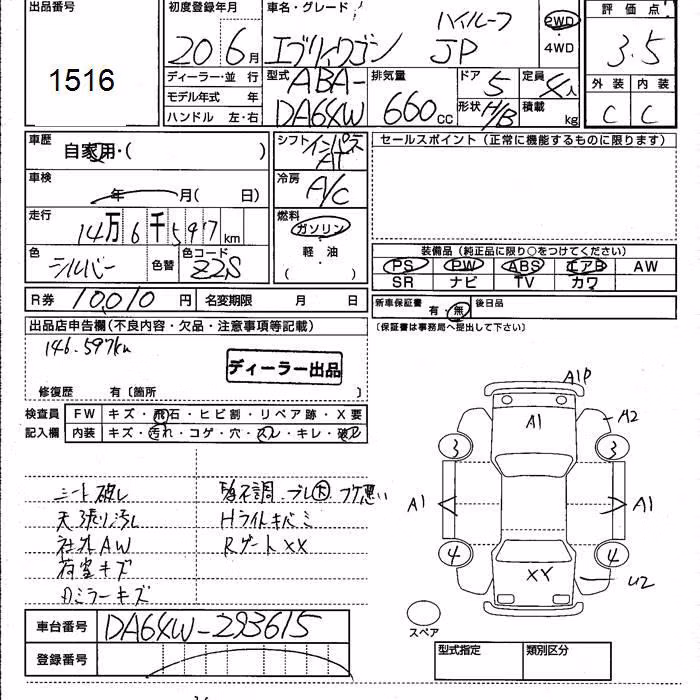 出品番号 初度登録年月 車名・グレード ハイルーフ 2WD 評価点
1516 20 6月 エブリィワゴン JP ・4WD 3.5
ディーラー・並 行 型式 ABA- 排気量 ドア 5 定員 4人 外装 内装
モデル年式 年 DA64W 660cc 形状 H/B 積載 kg C C
ハンドル 左・右
車歴 シフト インパネ セールスポイント(正常に機能するものに限ります)
自家用・( ) AT
車検 年 月( 日) 冷房 A/C
走行 14万6千597km 燃料 ガソリン
色 シルバー 色替 色コード Z2S 軽油 装備品(純正品に限り○をつけてください)
( ) PS PW ABS エアB AW
SR ナビ TV カワ
R券 10010円 名変期限 月 日 新車保証書 有・無 後日品
出品店申告欄(不良内容・欠品・注意事項等記載) 〔保証書は事務局へ提出して下さい〕
146.597km
ディーラー出品
修復歴 有〔箇所 〕
検査員 FW キズ・飛石・ヒビ割・リペア跡・X要
記入欄 内装 キズ・汚れ・コゲ・穴・スレ・キレ・破レ
A1P
A1 A2
3 3
シート破レ 不調 ブレ フケ悪い
A1 A1
天張り汚レ Hライトキバミ
社外AW RゲートXX
4 4
荷室キズ XX U2
ミラーキズ
スペア
車台番号 DA64W-293615
登録番号 型式指定 類別区分